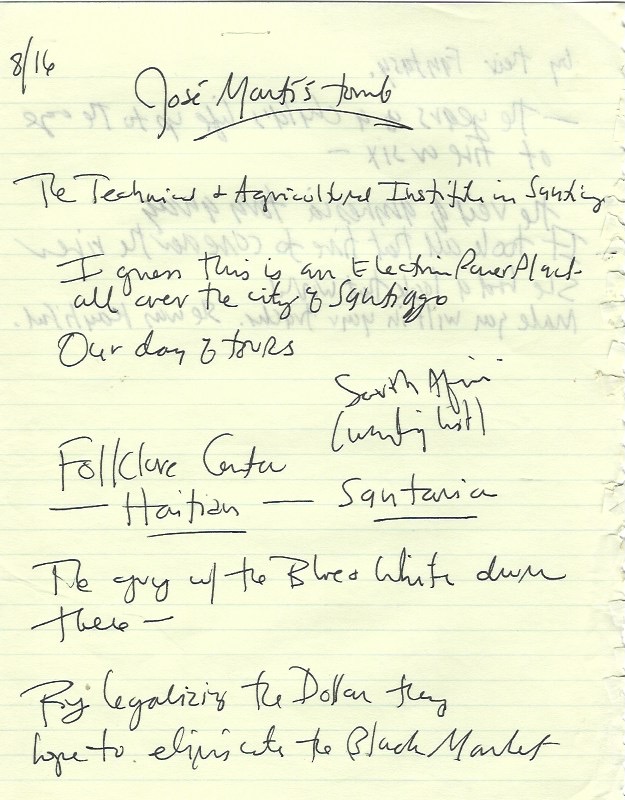 8/16
José Martí's tomb
The Technical & Agricultural Institute in Santiago
I guess this is an Electric Power Plant
all over the city of Santiago
Our day of tours
South Afri
(waiting list)
Follclore Center
— Haitian — Santaria
The guy w/ the Blue & White drum
there —
By legalizing the Dollar they
hope to eliminate the Black Market